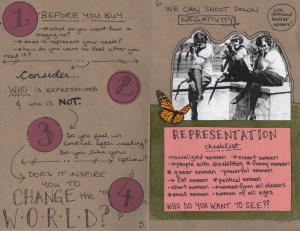 1
BEFORE YOU BUY...
→ what do you want from a
magazine?
→ does it represent your needs?
→ how do you want to feel after you
read it?
Consider...
WHO is represented
& who is NOT.
2
3
Do you feel in
control after reading?
Do you like your
options?
DOES IT INSPIRE
YOU TO
CHANGE the
W·O·R·L·D?
4
5.
6.
WE CAN SHOOT DOWN
NEGATIVITY!
We
demand
better
REPRESENTATION
checklist
• racialized women
• smart women
• people with disabilities
• funny women
queer women
• powerful women
• fat women
• political women
• short women
• women from all classes
women of all ages
WHO DO YOU WANT TO SEE??